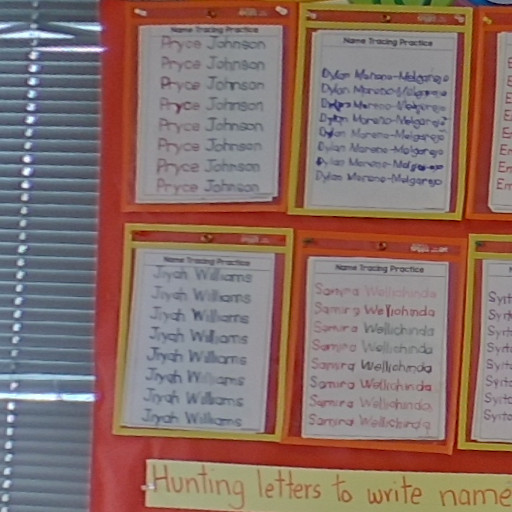 Name Tracing Practice
Pryce Johnson
Pryce Johnson
Pryce Johnson
Pryce Johnson
Pryce Johnson
Pryce Johnson
Pryce Johnson
Pryce Johnson
Name Tracing Practice
Dylan Moreno-Melgarejo
Dylan Moreno-Melgarejo
Dylan Moreno-Melgarejo
Dylan Moreno-Melgarejo
Dylan Moreno-Melgarejo
Dylan Moreno-Melgarejo
Dylan Moreno-Melgarejo
Dylan Moreno-Melgarejo
Name Tracing Practice
Jiyah Williams
Jiyah Williams
Jiyah Williams
Jiyah Williams
Jiyah Williams
Jiyah Williams
Jiyah Williams
Jiyah Williams
Name Tracing Practice
Samira Wellichinda
Samira Wellichinda
Samira Wellichinda
Samira Wellichinda
Samira Wellichinda
Samira Wellichinda
Samira Wellichinda
Samira Wellichinda
Hunting letters to write name